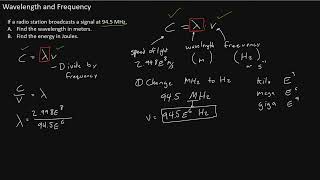 Wavelength and Frequency
If a radio station broadcasts a signal at 94.5 MHz,
A. Find the wavelength in meters.
B. Find the energy in Joules.
C = λ ν
Divide by frequency
C/ν = λ
λ = 2.998E⁸ / 94.5E⁶
C = λ · ν
speed of light
2.998E⁸ m/s
wavelength
(m)
frequency
(Hz)
or s⁻¹
① Change MHz to Hz
94.5 MHz
ν = 94.5E⁶ Hz
kilo E³
mega E⁶
giga E⁹